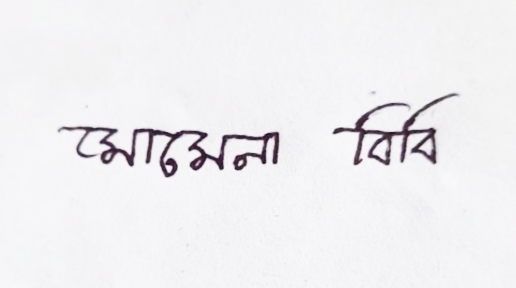 মোমেনা বিবি